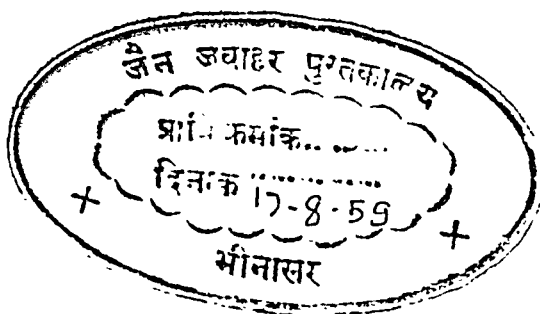 जैन जवाहर पुस्तकालय
प्राप्ति क्रमांक..........
दिनांक 17-8-59
भीनासर